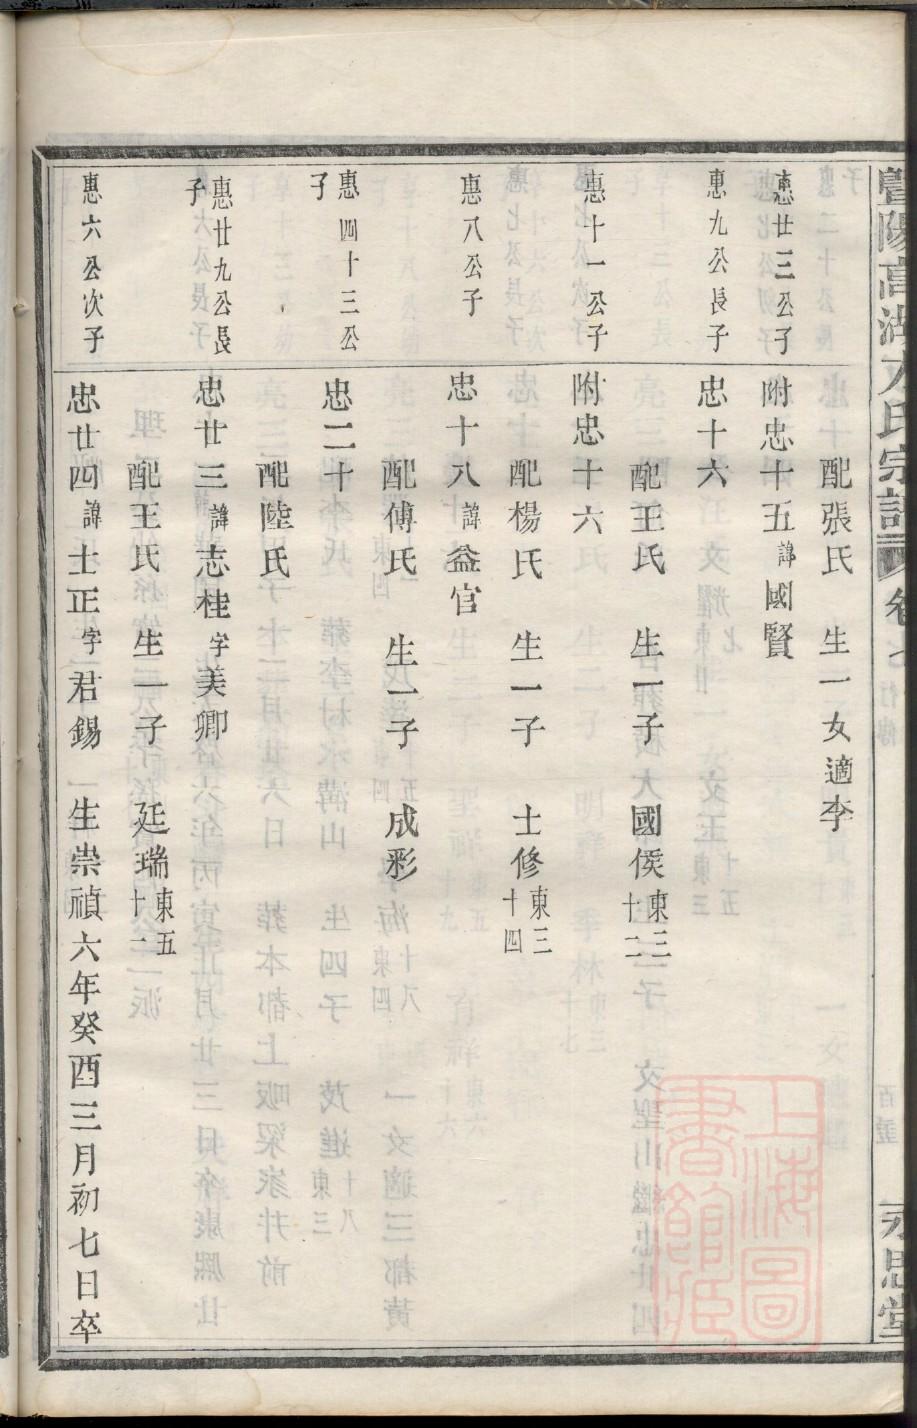 暨陽高湖方氏宗譜
卷七
行傳
永思堂
配張氏 生一女適李
惠廿三公子
附忠十五諱國賢
惠九公長子
忠十六
配王氏 生一子 國侯東三十二
惠十一公子
附忠十六
配楊氏 生一子 士修東三十四
惠八公子
忠十八諱益官
配傅氏 生一子 成彩
惠四十三公子
忠二十
配陸氏
惠廿九公長子
忠廿三諱志桂字美卿
配王氏 生一子 廷瑞東五十一
惠六公次子
忠廿四諱士正字君錫 生崇禎六年癸酉三月初七日卒
上海圖書館藏